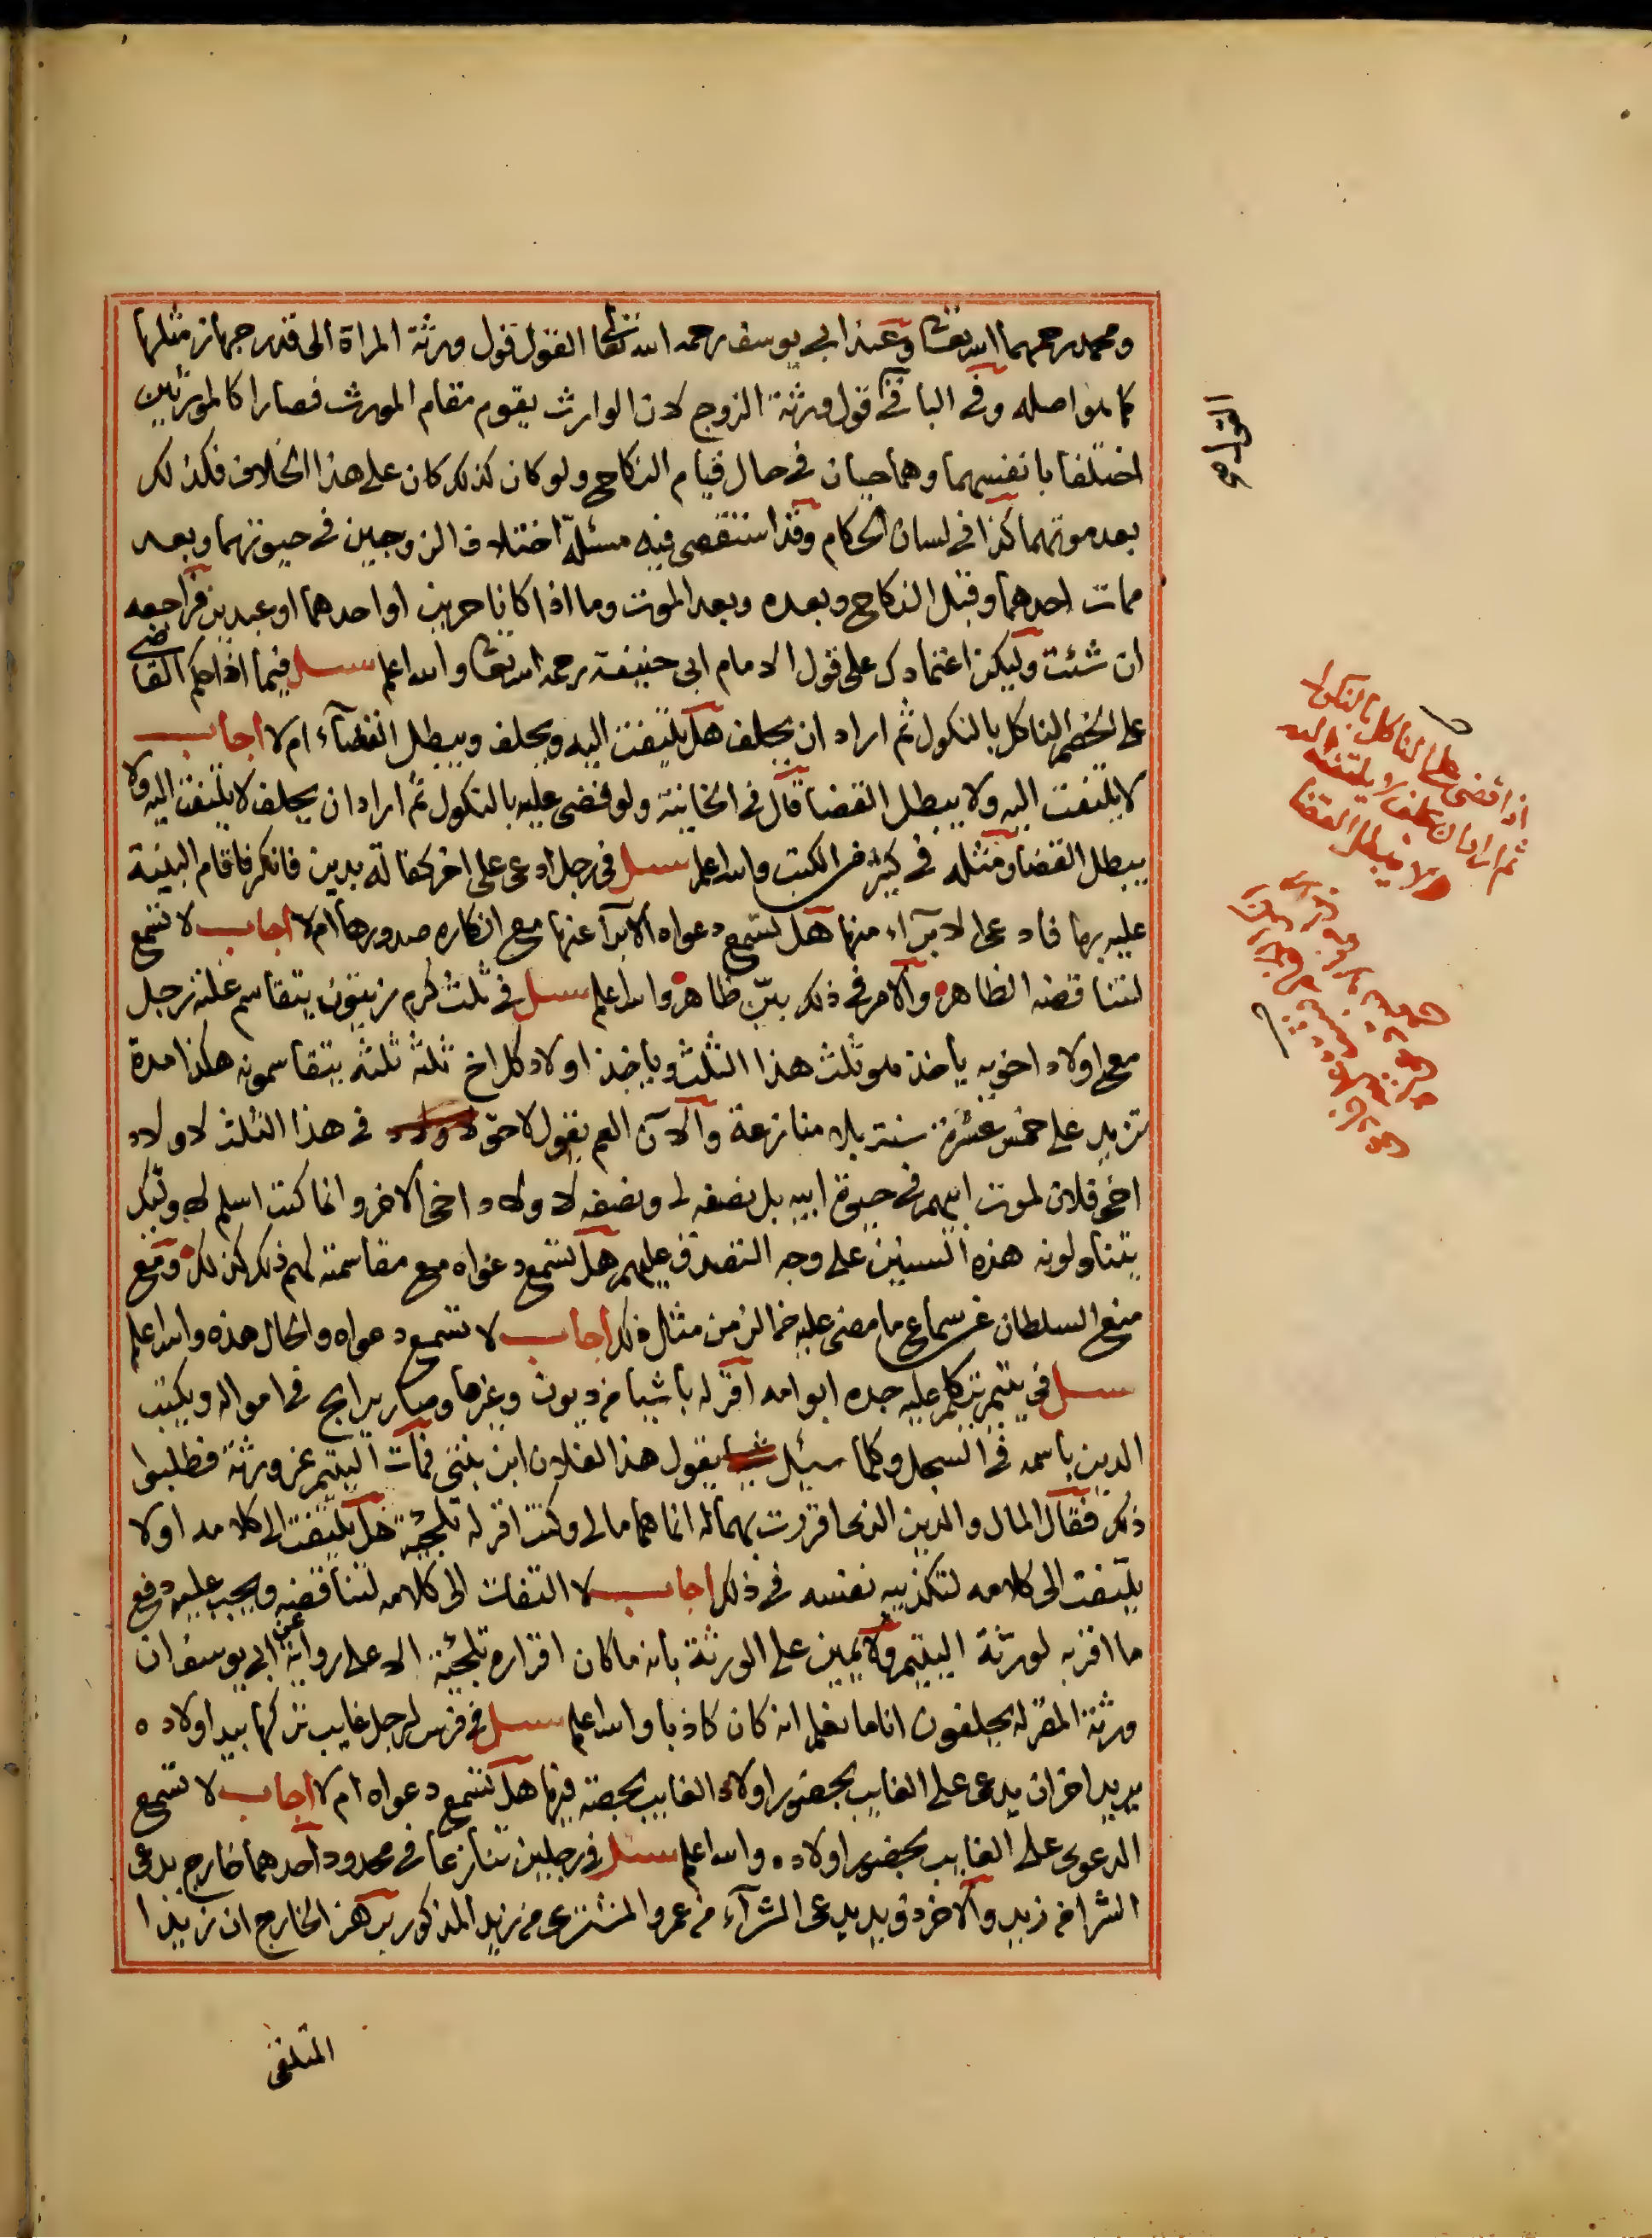 ومحمد رحمهما الله تعالى وعند ابي يوسف رحمه الله تعالى القول قول ورثة المراة الى قدر جهاز مثلها
كما هو اصله وفي الباقي قول ورثة الزوج لان الوارث يقوم مقام المورث فصارا كالمورثين
اختلفا بانفسهما وهما حيان في حال قيام النكاح ولو كان كذلك كان على هذا الخلاف فكذلك
بعد موتهما كذا في لسان الحكام وقد استقصى فيه مسئلة اختلاف الزوجين في حيوتهما وبعد
ممات احدهما وقبل النكاح وبعده وبعد الموت وما اذا كانا حرين او احدهما او عبدين فراجعه
ان شئت وليكن اعتمادك على قول الامام ابي حنيفة رحمه الله تعالى والله اعلم سئل فيما اذا حكم القاضي
على الخصم الناكل بالنكول ثم اراد ان يحلف هل يلتفت اليه ويحلف ويبطل القضآء ام لا اجاب
لا يلتفت اليه ولا يبطل القضا قال في الخانية ولو قضى عليه بالنكول ثم اراد ان يحلف لا يلتفت اليه ولا
يبطل القضا ومثله في كثير من الكتب والله اعلم سئل في رجل ادعى على اخر كفالة بدين فانكر فاقام البينة
عليه بها فادعى الابرآء منها هل تسمع دعواه الابرآ عنها مع انكاره صدورها ام لا اجاب لا تسمع
لتناقضه الظاهر والامر في ذلك بيّن ظاهر والله اعلم سئل في ثلث كرم زيتون يتقاسم غلته رجل
مع اولاد اخويه ياخذ هو ثلث هذا الثلث وياخذ اولاد كل اخ ثلثه ثلثه يتقاسمونه هكذا مدة
تزيد على خمس عشرة سنة بلا منازعة والآن العم يقول لا حق في هذا الثلث لاولاد
اخي فلان لموت ابيهم في حيوة ابيه بل نصفه لي ونصفه لاولاد اخي الاخر وانما كنت اسلم لاولئك
يتناولونه هذه السنين على وجه التصدق عليهم هل تسمع دعواه مع مقاسمته لهم ذلك كذلك ومع
منع السلطان عن سماع ما مضى عليه من الزمن مثل ذلك اجاب لا تسمع دعواه والحال هذه والله اعلم
سئل في يتيم تكلم عليه جده ابو امه اقر له باشيا من ديون وغيرها وصار يرابح في امواله ويكتب
الدين باسمه في السجل وكلما سئل يقول هذا لفلان ابن بنتي فمات اليتيم عن ورثة فطلبوا
ذلك فقال المال والدين الذي اقررت بهما له انما هما مالي وكنت اقر له تلجئة هل يلتفت الى كلامه او لا
يلتفت الى كلامه لتكذيبه نفسه في ذلك اجاب لا التفات الى كلامه لتناقضه ويجب عليه دفع
ما اقر به لورثة اليتيم ولا يمين على الورثة بانه ما كان اقراره تلجئة الا على رواية عن ابي يوسف ان
ورثة المقر له يحلفون انا ما نعلم انه كان كاذبا والله اعلم سئل في فرس لرجل غايب تركها بيد اولاده
يريد اخر ان يدعى على الغايب بحضور اولاد الغايب بحصة فيها هل تسمع دعواه ام لا اجاب لا تسمع
الدعوى على الغايب بحضور اولاده والله اعلم سئل في رجلين تنازعا في محدود احدهما خارج يدعى
الشرا من زيد والاخر ذو يد يدعى الشرآء من عمرو المشترى من زيد المذكور برهن الخارج ان زيدا
المتلقى
اذا قضى على الناكل بالنكول
ثم اراد ان يحلف لا يلتفت اليه
ولا يبطل القضا